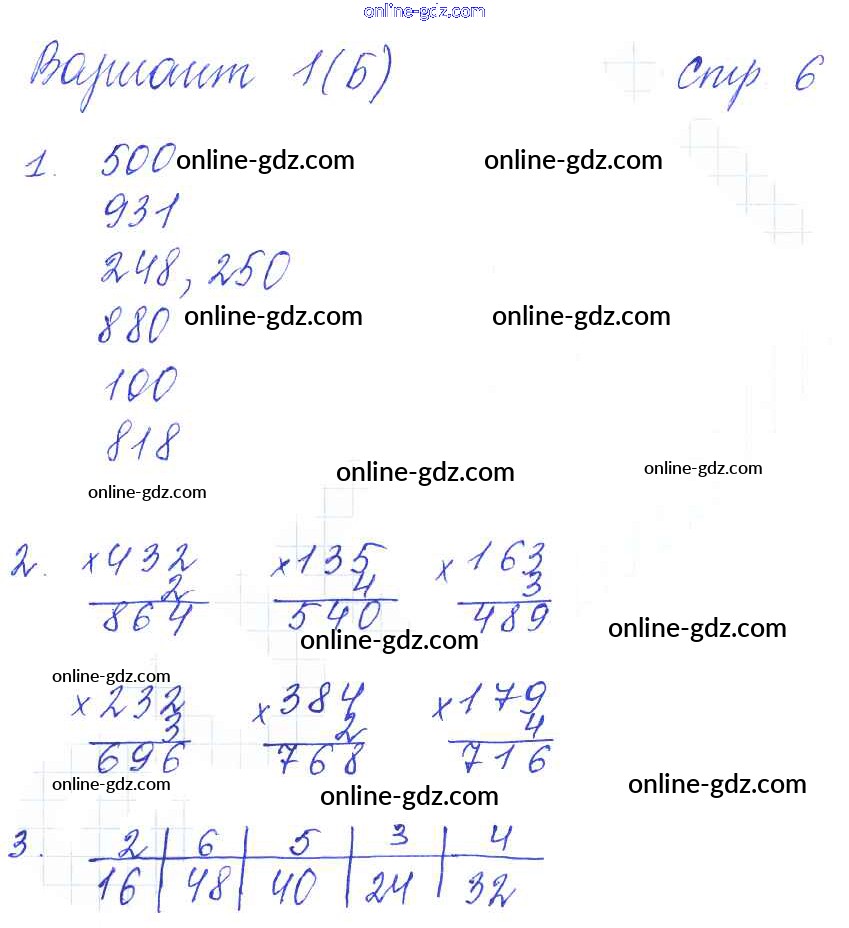 online-gdz.com
Вариант 1(Б) Стр 6
1. 500 online-gdz.com online-gdz.com
931
248, 250
880 online-gdz.com online-gdz.com
100
818
online-gdz.com online-gdz.com online-gdz.com
2. ×432 ×135 ×163
2 4 3
864 540 489
online-gdz.com online-gdz.com
online-gdz.com
×232 ×384 ×179
3 2 4
696 768 716
online-gdz.com online-gdz.com online-gdz.com
3. 2 | 6 | 5 | 3 | 4
16 | 48 | 40 | 24 | 32